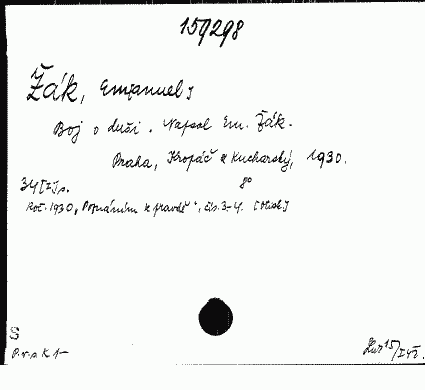 159298
Žák, Emanuel
Boj o duši. Napsal Em. Žák.
Praha, Kropáč & Kucharský, 1930.
34 [I] s. 8°
Roč. 1930, „Poznáním k pravdě“, čís. 3-4. [Obsah]
S
P.v.s. K 1-
15/IVI.